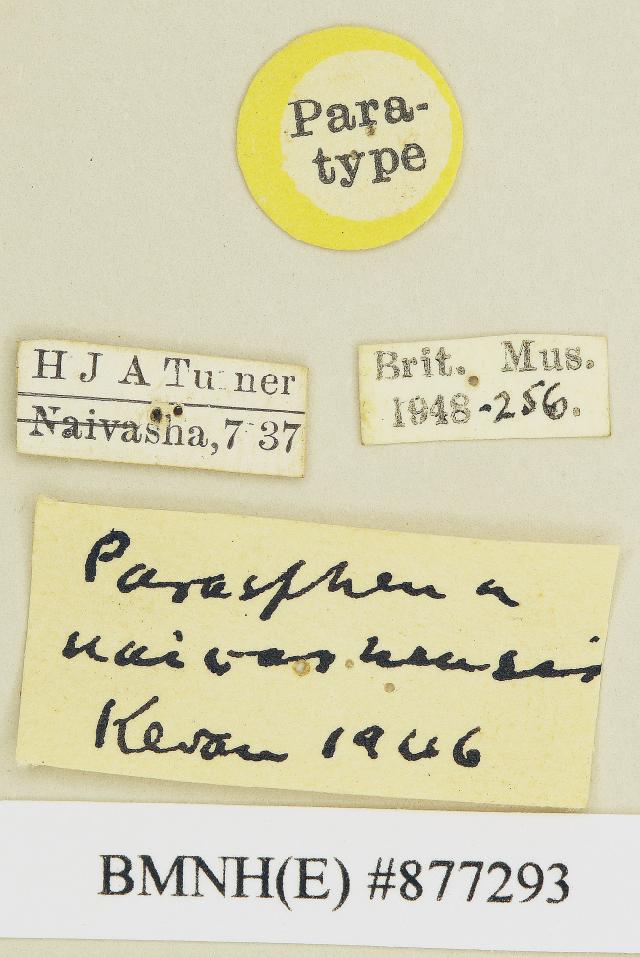 Para-
type
H J A Turner
Naivasha, 7 37
Brit. Mus.
1948-256.
Parasphena
naivashensis
Kevan 1946
BMNH(E) #877293